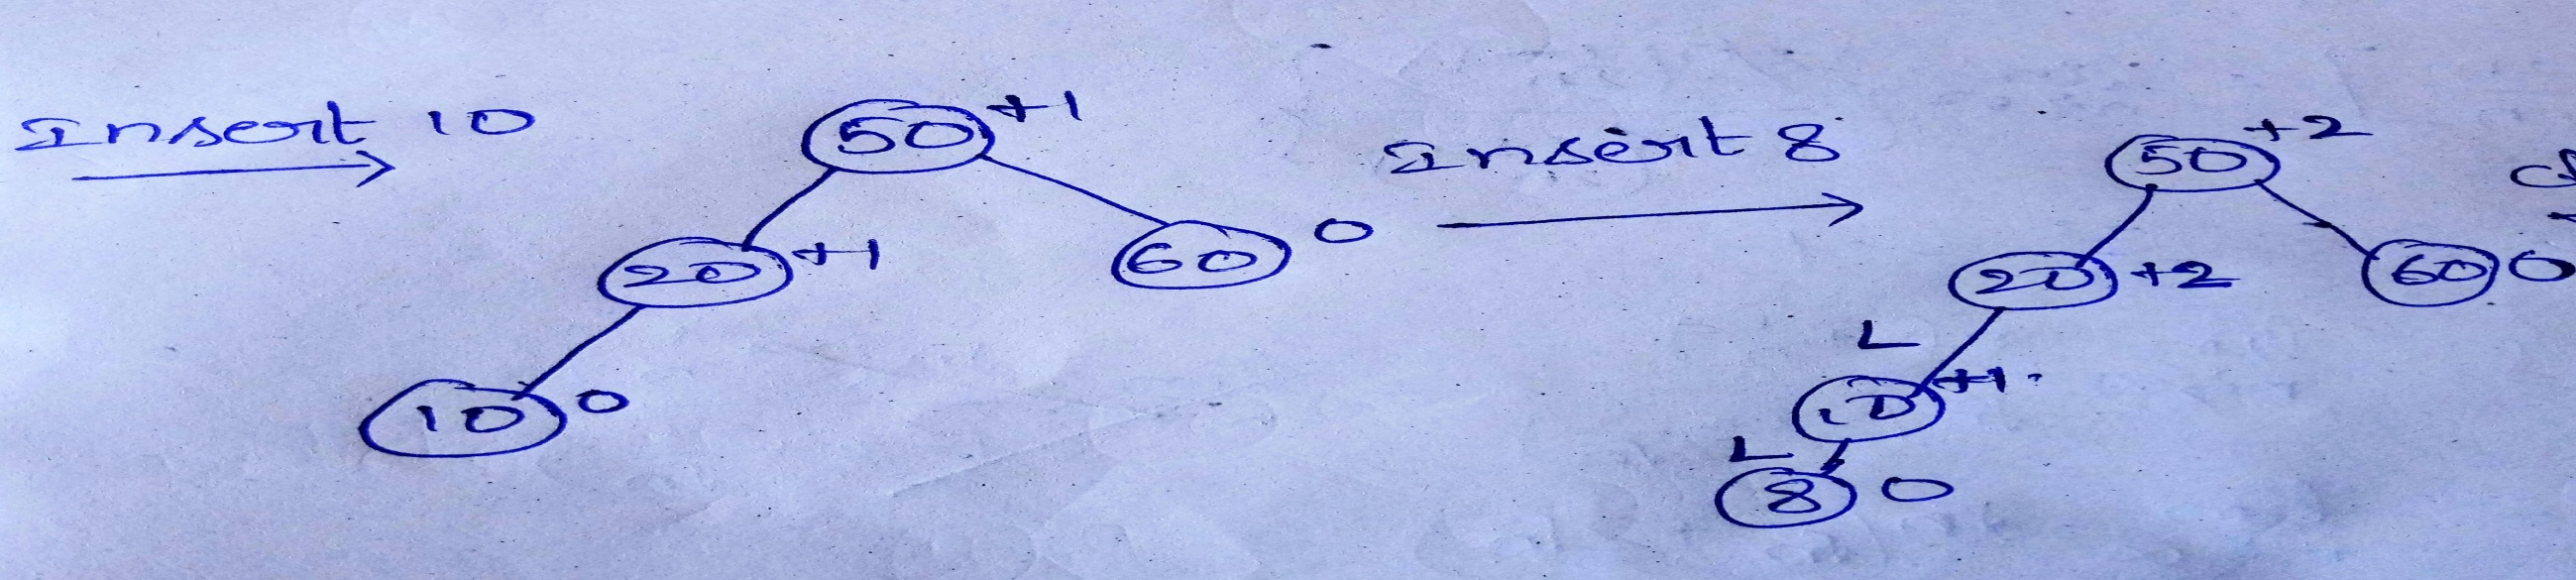 Insert 10
50 +1
20 +1
60 0
10 0
Insert 8
50 +2
20 +2
60 0
L
10 +1
L
8 0